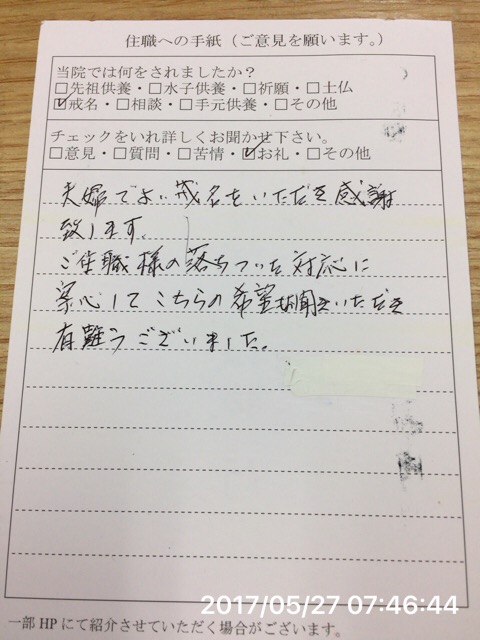 住職への手紙（ご意見を願います。）
当院では何をされましたか？
□先祖供養・□水子供養・□祈願・□土仏
☑戒名・□相談・□手元供養・□その他
チェックをいれ詳しくお聞かせ下さい。
□意見・□質問・□苦情・☑お礼・□その他
夫婦でよい戒名をいただき感謝
致します。
ご住職様の落ちついた対応に
安心してこちらの希望お聞きいただき
有難うございました。
2017/05/27 07:46:44
一部HPにて紹介させていただく場合がございます。